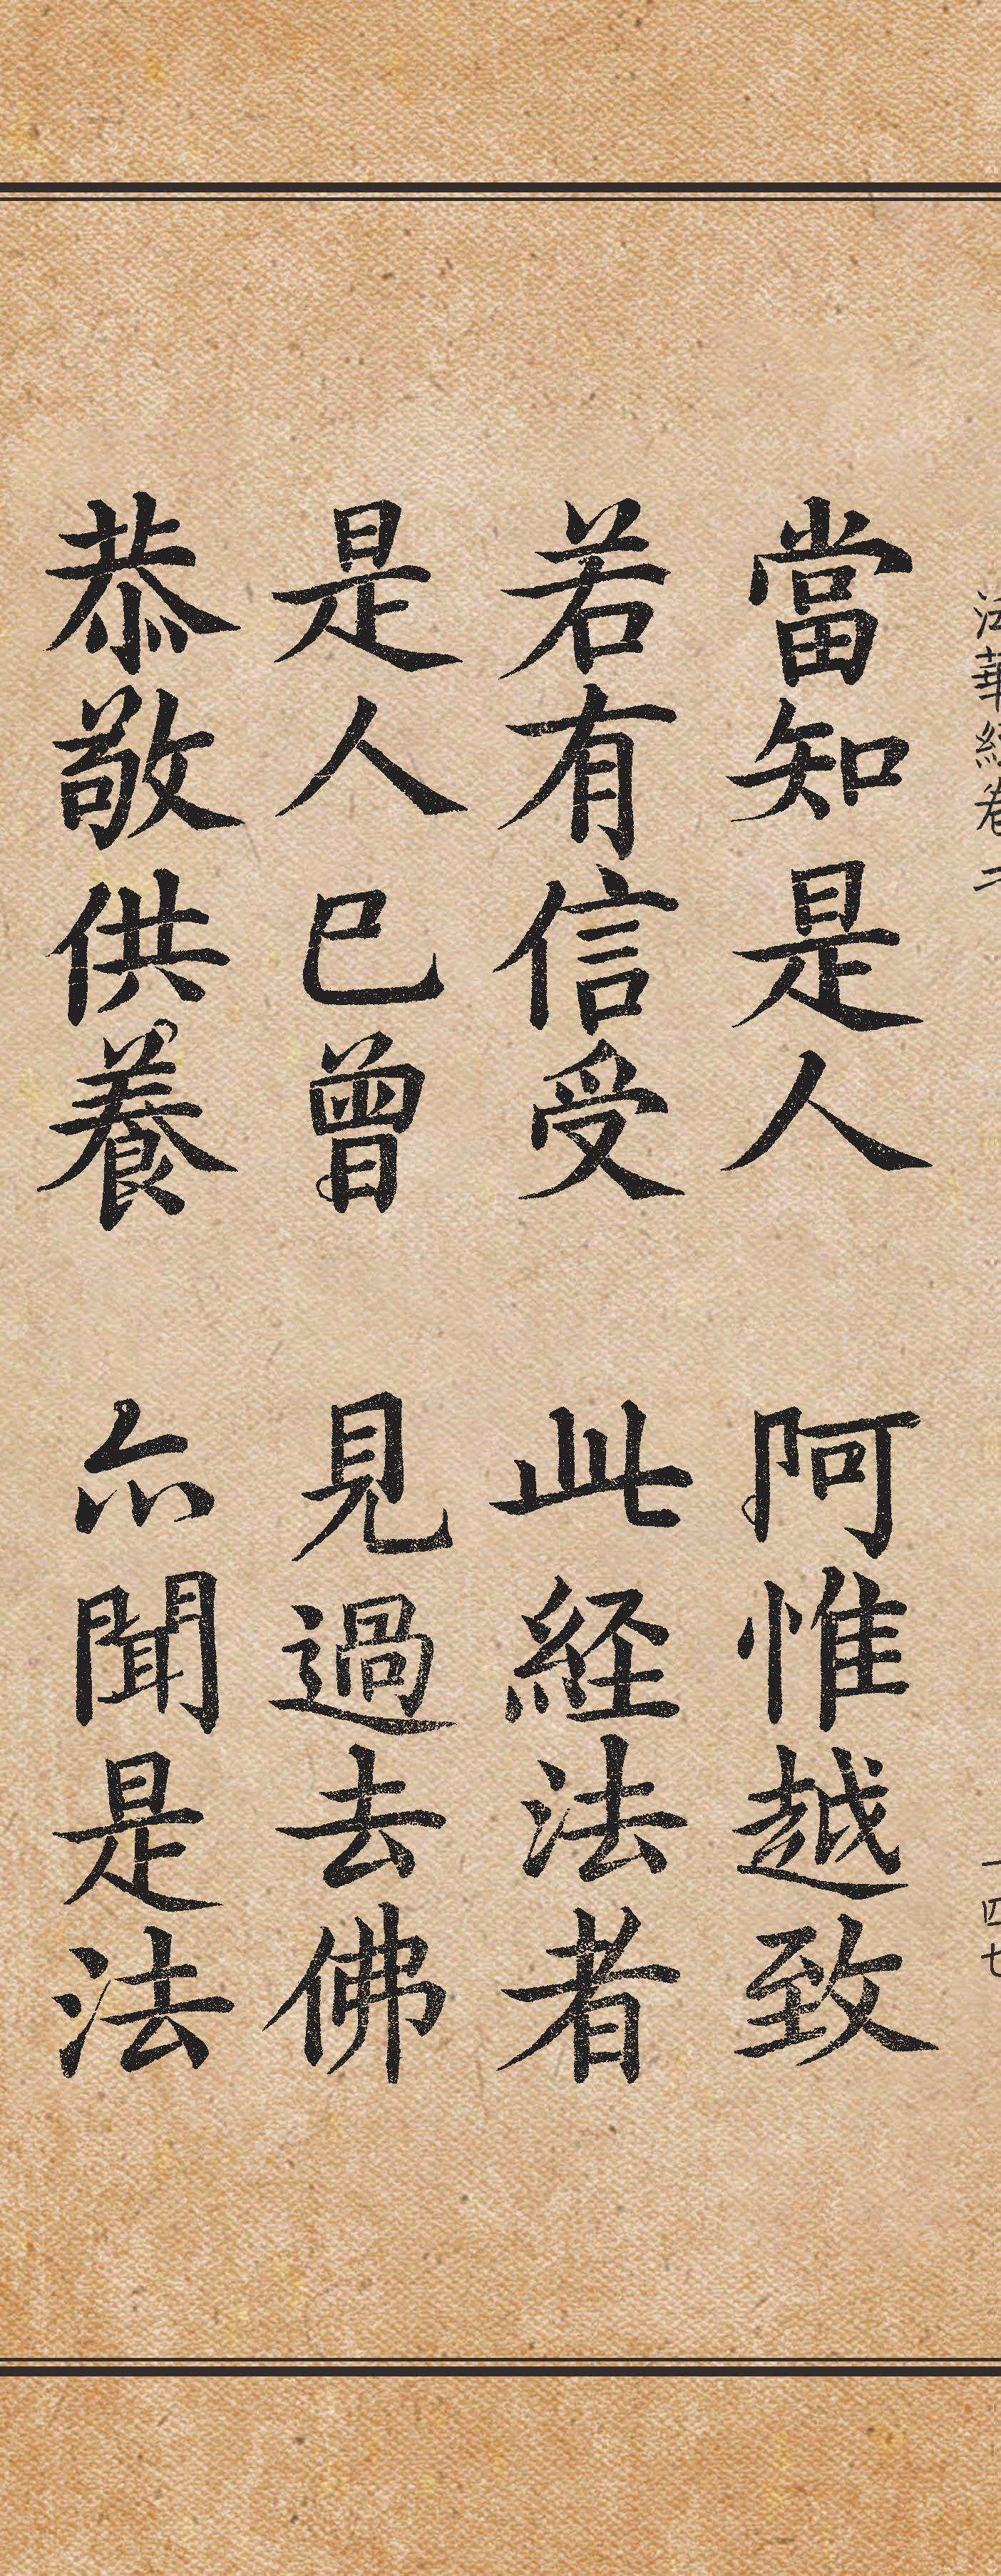 法華経卷
一四七
當知是人 阿惟越致
若有信受 此経法者
是人巳曾 見過去佛
恭敬供養 亦聞是法